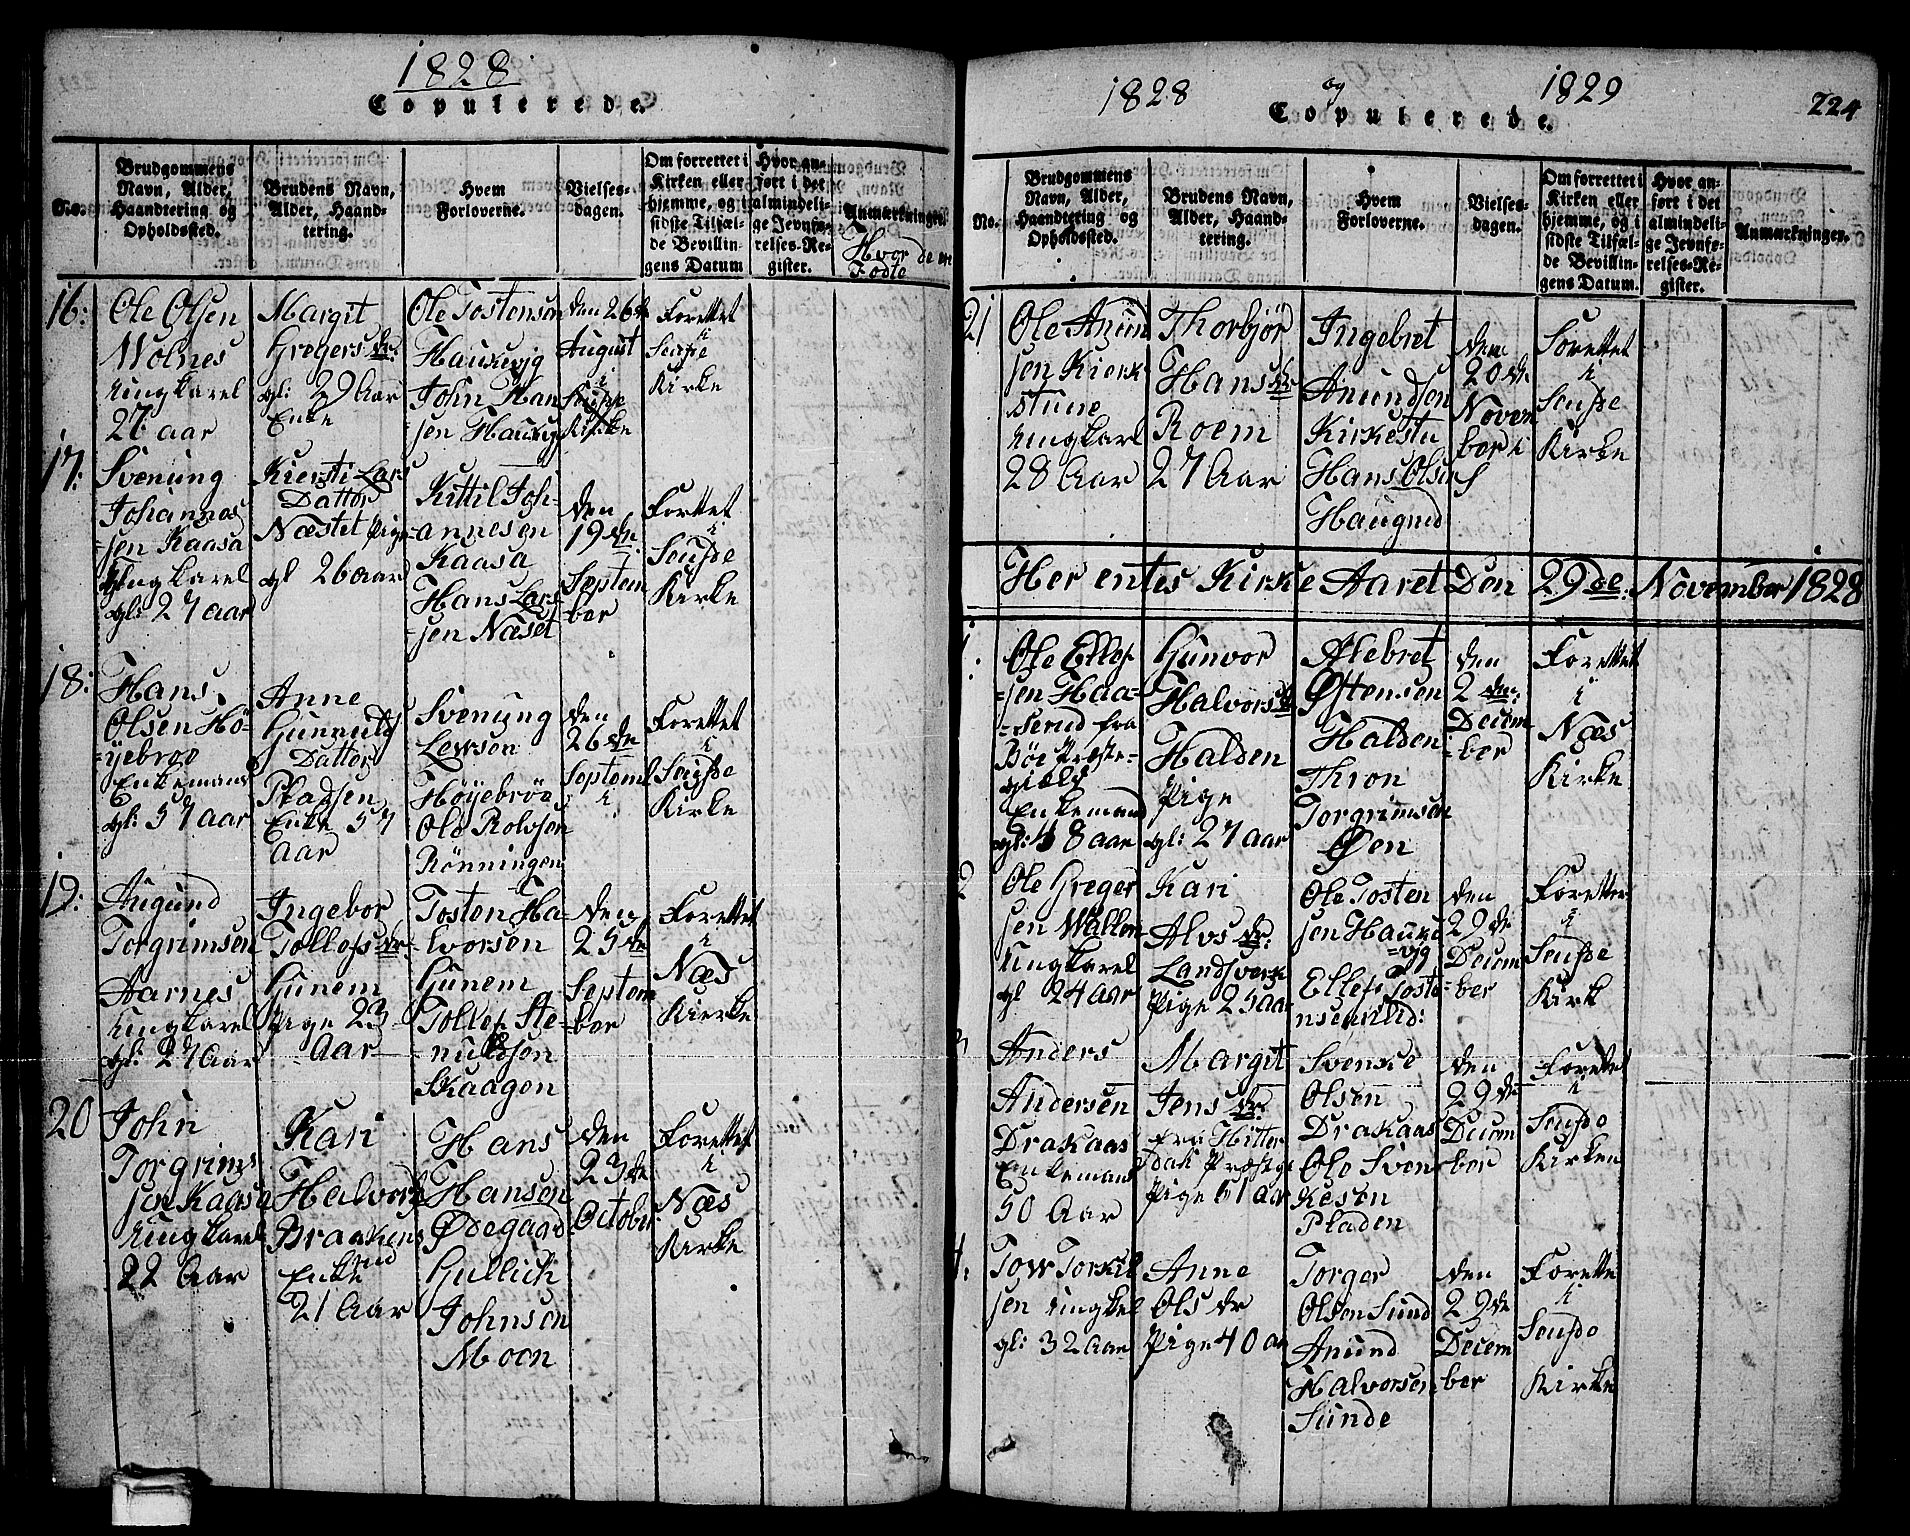 1828
Copulerede.
No.
Brudgommens
Navn, Alder,
Haandtering og
Opholdssted.
Brudens Navn,
Alder, Haand-
tering.
Hvem
Forloverne.
Vielses-
dagen.
Om forrettet i
Kirken eller
hjemme, og i
sidste Tilfæl-
de Bevillin-
gens Datum
Hvor an-
ført i det
almindeli-
ge Jevnfø-
relses-Re-
gister.
Anmærkninger
Hvor de er
Fødte
16:
Ole Olsen
Wolnes
Ungkarel
27 aar
Margit
Gregers dr:
gl: 29 Aar
Enke
Ole Tostensen
Haukevjg
John Han
sen Haukvjg
den 26de
August
i
Kirke
Forettet
i
Seufde
Kirke
17:
Svenung
Johannes
sen Kaasa
Ungkarel
gl: 27 aar
Kiersti Lar
Datter
Næstet Pige
gl 26 aar
Kittil Joh-
annesen
Kaasa
Hans Lars
sen Næset
den
19de
Septem
ber
Forttet
i
Seufde
Kirke
18:
Hans
Olsen Hö-
yebroe
Enkemand
gl: 57 aar
Anne
Gunnuls
Datter
Pladsen
Enke 57
Aar
Svenung
Lewsen
Høyebröe
Ole Rolssen
Rönningen
den
26de
Septemb
Forettet
i
Seufde
Kirke
19:
Augund
Torgrimsen
Aarnes
Ungkarel
gl: 27 Aar
Ingebor
Tollofs dr
Gunem
Pige 23
Aar
Tosten Ha-
lvorsen
Gunem
Tollef Ste-
nulssen
Skaagen
den
25de
Septem
ber
Forettet
i
Næs
Kierke
20
John
Torgrims
sen Kaasa
Ungkarel
22 Aar
Kari
Halvors
Braakens
rud
Enke
21 Aar
Hans
Hansen
Ødegaard
Gullick
Johnsen
Moen
den
23de
October
Forettet
i
Næs
Kirke
1828 og 1829
Copulerede.
224
No.
Brudgommens
Navn, Alder,
Haandtering og
Opholdssted.
Brudens Navn,
Alder, Haand-
tering.
Hvem
Forloverne.
Vielses-
dagen.
Om forrettet i
Kirken eller
hjemme, og i
sidste Tilfæl-
de Bevillin-
gens Datum.
Hvor an-
ført i det
almindeli-
ge Jevnfø-
relses-Re-
gister.
Anmærkninger.
21
Ole Anund
sen Kierk
stuue
Ungkarl
28 Aar
Thorbjör
Hans dr
Roem
27 Aar
Ingebret
Anundsen
Kirkestu
Hans Olsen
Haugrud
den
20de
Novem
ber i
Forettet
i
Seufde
Kirke
Her entes Kirke Aaret Den 29de: November 1828
1:
Ole Ellef
sen Haa-
serud fra
Böe Præste-
gield
Enkemand
gl: 48 aar
Gunvor
Halvors dr
Halden
Pige
gl: 27 aar
Alebret
Østensen
Halden
Thron
Torgrimsen
Øen
den
2den
Decem
ber
Forettet
i
Næs
Kirke
2
Ole Greger
sen Wallen
Ungkarel
gl 24 aar
Kari
Alvs dr:
Landsverk
Pige 25 aa
Ole Tosten
sen Hauke
vjg
Ellef Toste
nsen
den
29de
Decem
ber
Foretter
i
Seufde
Kirk
3
Anders
Andersen
Drakaas
Enkemand
50 Aar
Margit
Jens dr:
fra Hitter
dak Prestgi
Pige 61 aar
Svenke
Olsen
Drakaas
Ole Sven
kesen
Pladen
den
29de
Decem
ber
Forette
i
Seufde
Kirken
4:
Tow Torkil
sen Ungkel
gl: 32 Aar
Anne
Ols dr
Pige 40 aa
Torger
Olsen Sund
Anund
Halvorsen
Sunde
den
29de
Decem
ber
Forette
i
Seufde
Kirke